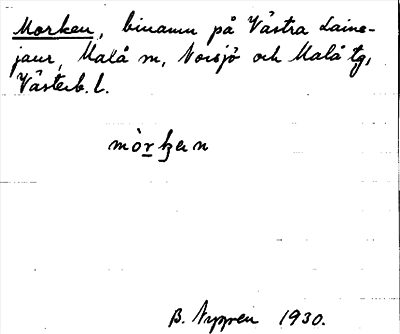 Morken, binamn på Västra Laine-
jaur, Malå sn, Norsjö och Malå tg,
Västerb. l.
B. Nygren 1930.